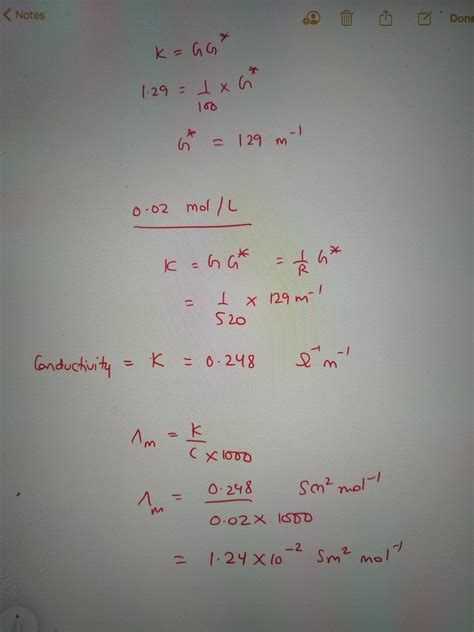 Notes
Done
K = GG*
1.29 = 1/100 × G*
G* = 129 m⁻¹
0.02 mol/L
K = GG* = 1/R G*
= 1/520 × 129 m⁻¹
Conductivity = K = 0.248 Ω⁻¹ m⁻¹
Λm = K/(C × 1000)
Λm = 0.248/(0.02 × 1000) Sm² mol⁻¹
= 1.24 × 10⁻² Sm² mol⁻¹